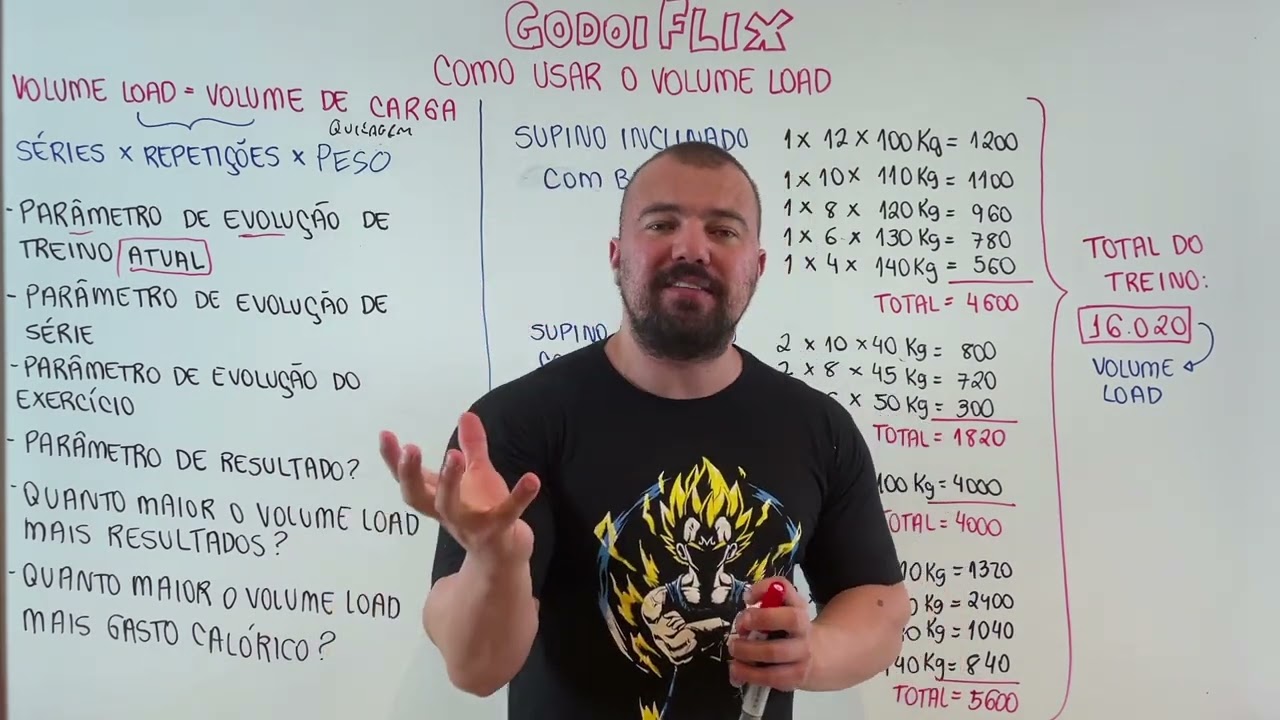 GODOI FLIX
COMO USAR O VOLUME LOAD
VOLUME LOAD = VOLUME DE CARGA
QUILAGEM
SÉRIES x REPETIÇÕES x PESO
- PARÂMETRO DE EVOLUÇÃO DE
TREINO ATUAL
- PARÂMETRO DE EVOLUÇÃO DE
SÉRIE
- PARÂMETRO DE EVOLUÇÃO DO
EXERCÍCIO
- PARÂMETRO DE RESULTADO?
- QUANTO MAIOR O VOLUME LOAD
MAIS RESULTADOS?
- QUANTO MAIOR O VOLUME LOAD
MAIS GASTO CALÓRICO?
SUPINO INCLINADO
COM B
1 x 12 x 100 Kg = 1200
1 x 10 x 110 Kg = 1100
1 x 8 x 120 Kg = 960
1 x 6 x 130 Kg = 780
1 x 4 x 140 Kg = 560
TOTAL = 4600
SUPINO
2 x 10 x 40 Kg = 800
x 8 x 45 Kg = 720
x 50 Kg = 300
TOTAL = 1820
100 Kg = 4000
TOTAL = 4000
10 Kg = 1320
0 Kg = 2400
0 Kg = 1040
40 Kg = 840
TOTAL = 5600
TOTAL DO
TREINO:
16.020
VOLUME
LOAD